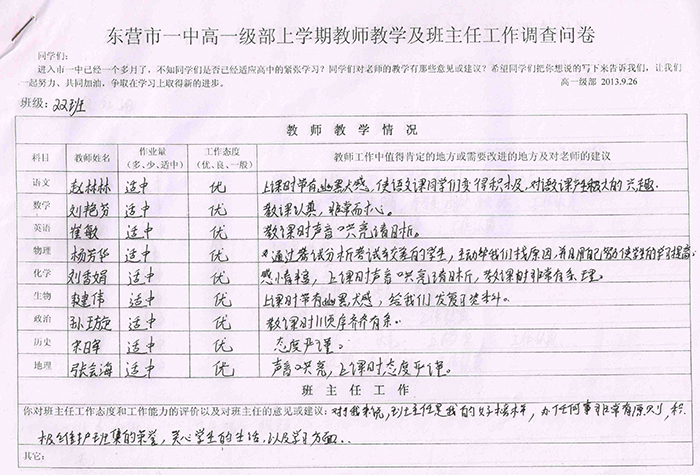 东营市一中高一级部上学期教师教学及班主任工作调查问卷
同学们：
进入市一中已经一个多月了，不知同学们是否已经适应高中的紧张学习？同学们对老师的教学有那些意见或建议？希望同学们把你想说的写下来告诉我们，让我们
一起努力、共同加油，争取在学习上取得新的进步。 高一级部 2013.9.26
班级：双班
教师教学情况
科目 教师姓名 作业量（多、少、适中） 工作态度（优、良、一般） 教师工作中值得肯定的地方或需要改进的地方及对老师的建议
语文 赵林林 适中 优 上课时带有幽默感，使语文课同学们变得积极，对语文课产生极大的兴趣．
数学 刘艳芬 适中 优 教课认真，非常而耐心。
英语 崔敏 适中 优 教课时声音洪亮清晰。
物理 杨芳华 适中 优 通过考试分析考试的学生，主动帮我们找原因，并且用自己努力使学生的学习提高．
化学 刘香娟 适中 优 感情丰富，上课时声音洪亮清晰，教课时非常有条理。
生物 建伟 适中 优 上课时带有幽默感，给我们发复习资料。
政治 孙琼 适中 优 教课时顺序齐齐有条．
历史 宋日军 适中 优 态度严谨。
地理 张会海 适中 优 声音洪亮，上课时态度严谨。
班主任工作
你对班主任工作态度和工作能力的评价以及对班主任的意见或建议：对我来说，班主任是我的好榜样，办任何事非常有原则，积
极维护班集的荣誉，关心学生的生活，以及学习方面．．
其它：